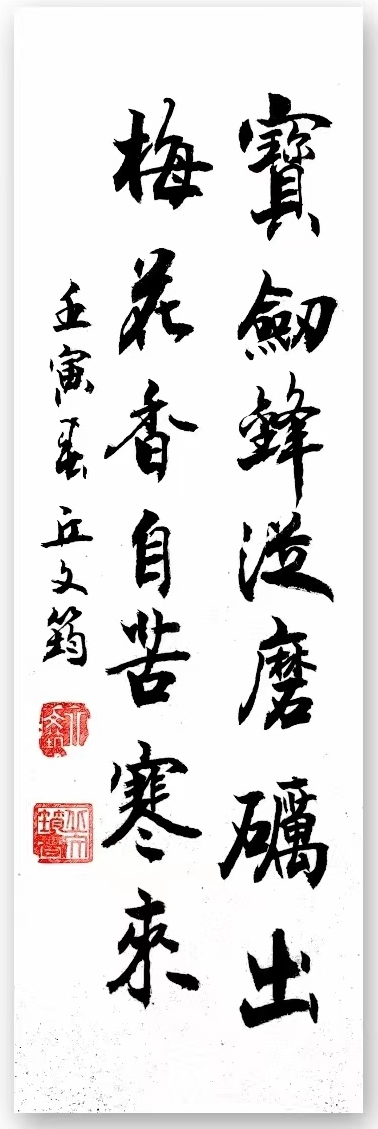 寶劒鋒從磨礪出
梅花香自苦寒來
壬寅春丘文筠